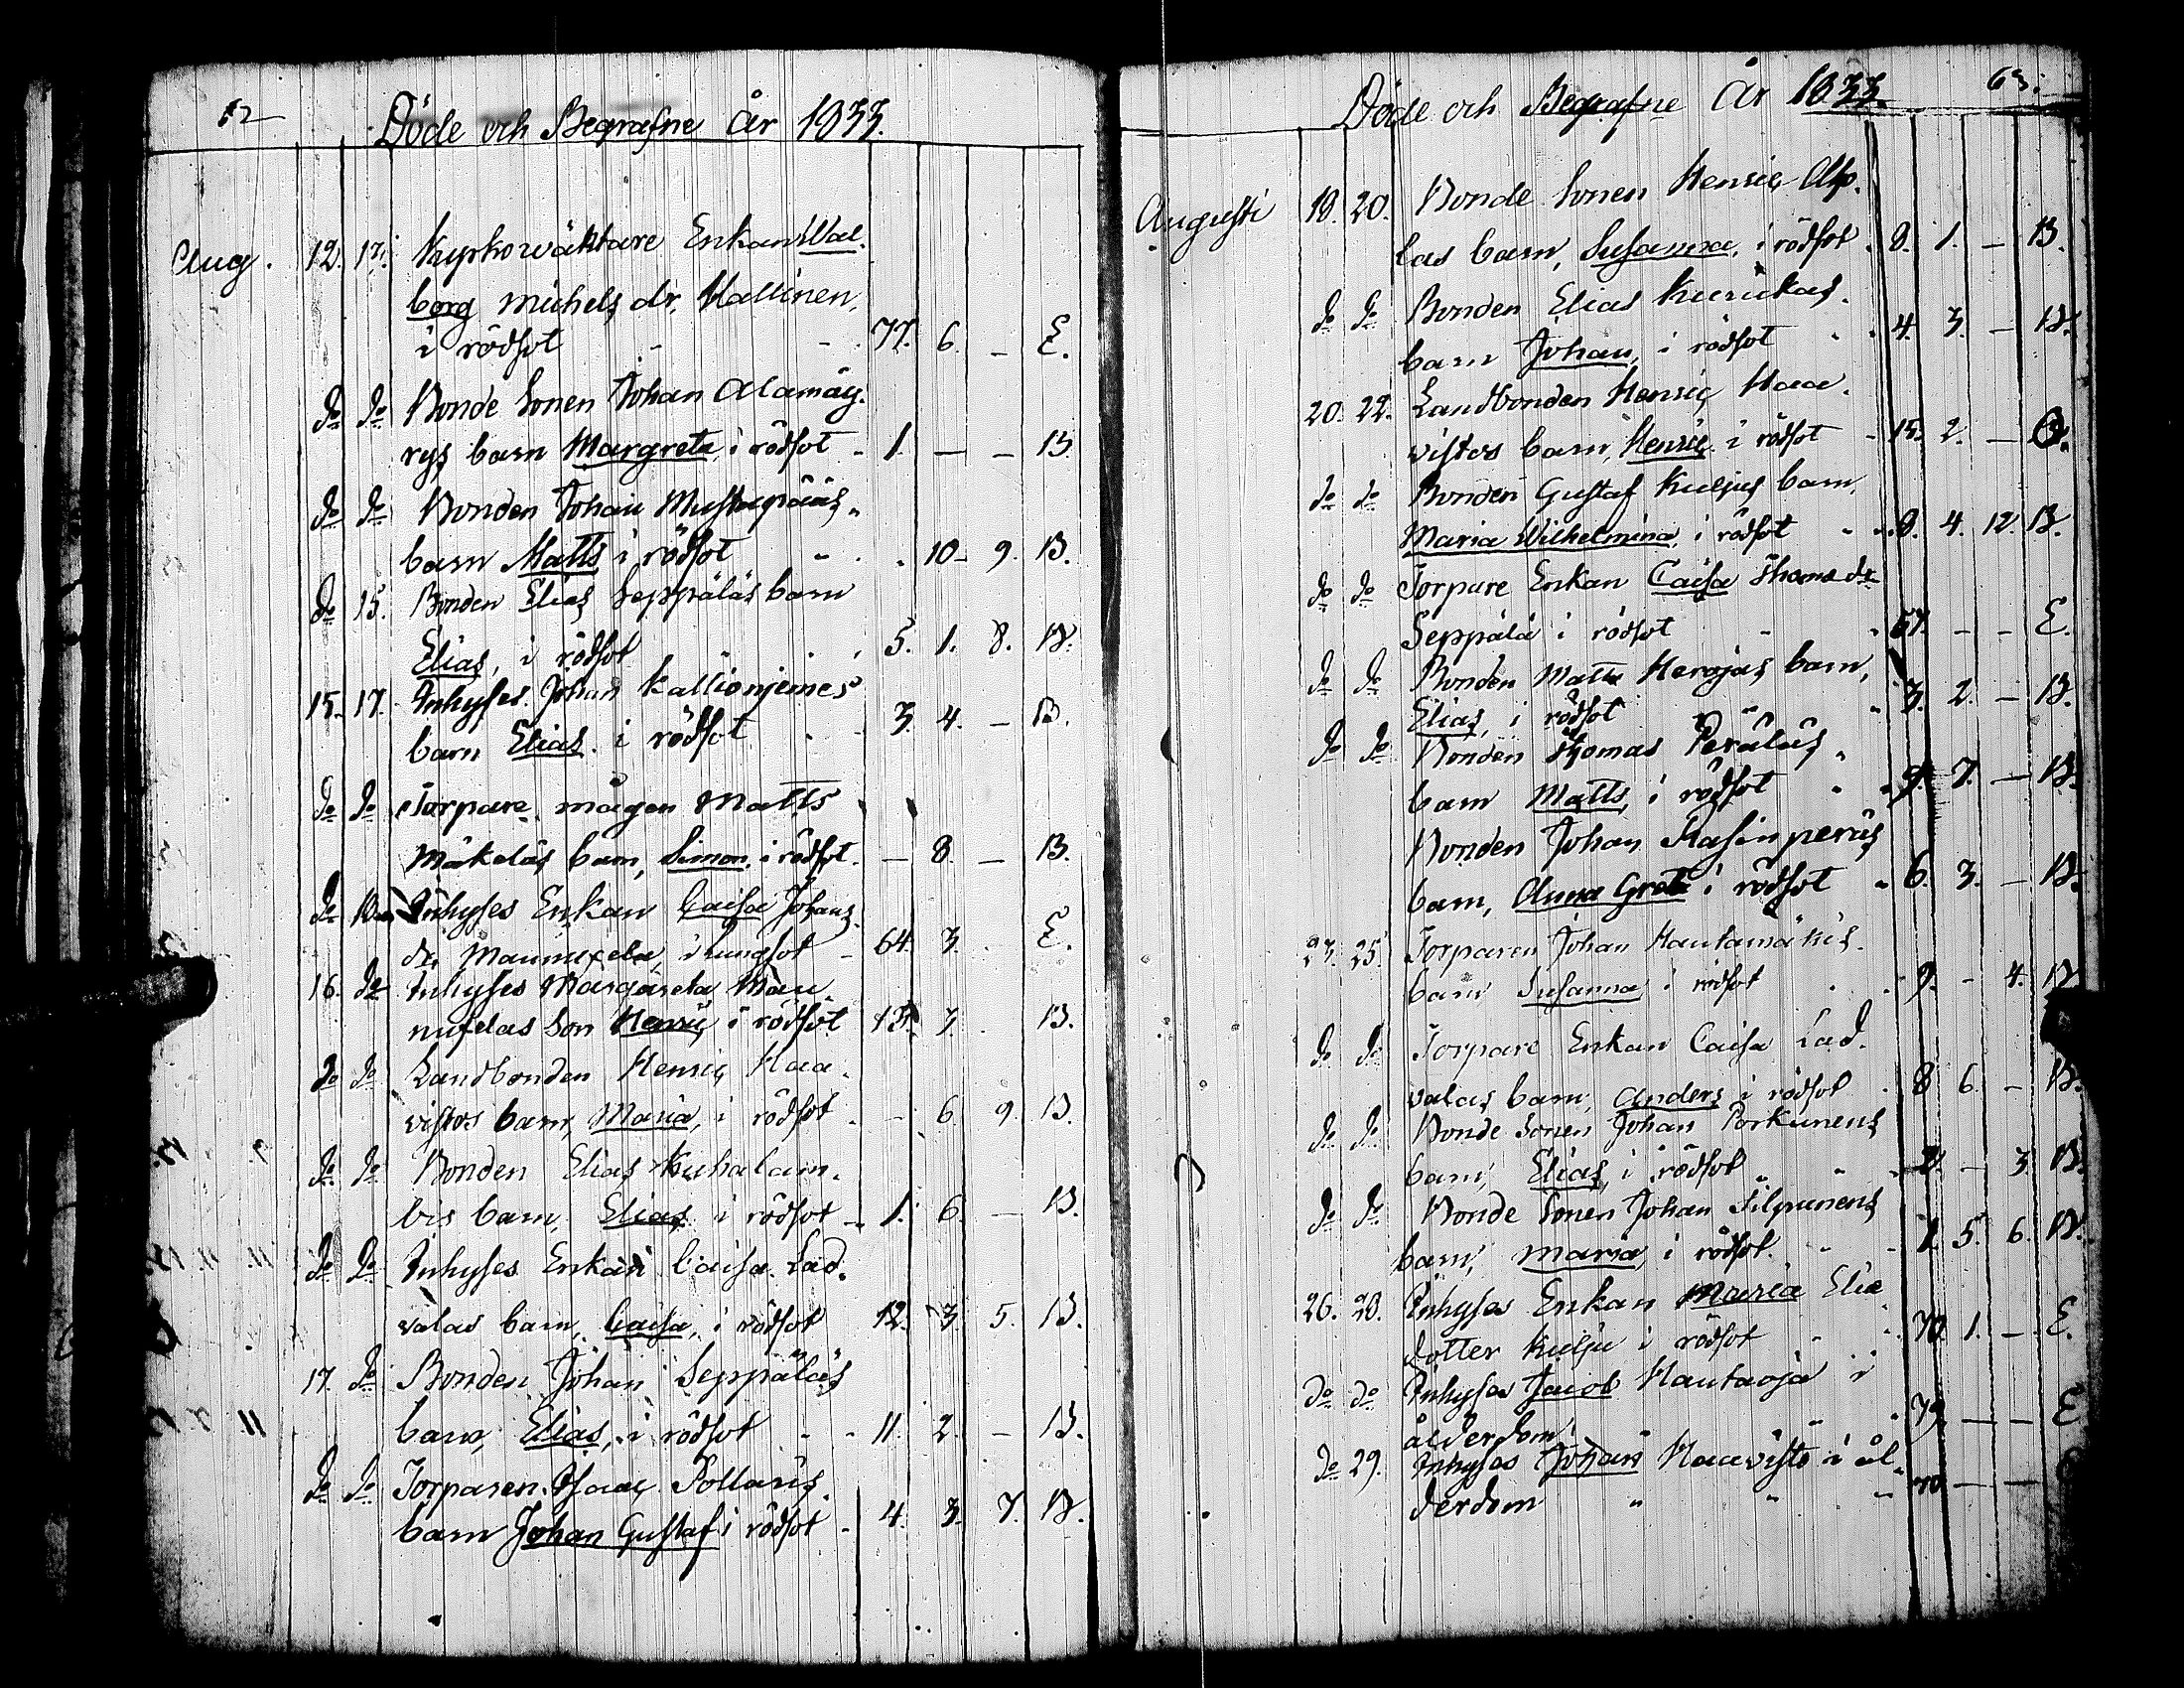 62
Döde och Begrafne år 1833.
Aug. 12. 17. Kyrkowäktare Enkan Wal-
borg Michels dr. Hallinen,
i rödsot - - 77. 6. - E.
do do Bonde Sonen Johan Alamäy-
rys barn Margreta, i rödsot - 1. - - B.
do do Bonden Johan Mustapääs
barn Matts i rödsot - . 10 - 9. B.
do 15. Bonden Elias Seppäläs barn
Elias, i rödsot 5. 1. 8. B.
15. 17. Inhyses Johan Kallionjemes
barn Elias. i rödsot 3. 4. - B.
do do Torpare mågen Matts
Mäkeläs barn, Simon, i rödsot - - 8. - B.
do Inhyses Enkan Caisa Johans
dr. Mannuxela, i lungsot - 64. 3. E.
16. do Inhyses Margareta Man-
nuxelas Son Henric i rödsot 3. B.
do do Landbonden Henric Haa-
vistos barn, Maria, i rödsot - - 6. 9. B.
do do Bonden Elias Kuhalam-
bis barn, Elias i rödsot - 1. 6. - B.
do do Inhyses Enkan Caisa Lad-
valas barn, Caisa, i rödsot 12. 3. 5. B.
17. do Bonden Johan Seppäläs
barn, Elias, i rödsot - 11. 2. - B.
do do Torparen Isaac Pollaris
barn Johan Gustaf i rödsot - 4. 3. 7. B.
Döde och Begrafne År 1833. 63.
Augusti 18. 20. Bonde Sonen Henric Alp-
las barn, Susanna, i rödsot . 8. 1. - B.
do do Bonden Elias Kurikas
barn Johan, i rödsot . . 4. 3. - B.
20. 22. Landbonden Henric Haa-
vistos barn, Henric i rödsot - 15. 2. -
do do Bonden Gustaf Kuljus barn,
Maria Wilhelmina, i rödsot - 8. 4. 12. B.
do do Torpare Enkan Caisa Thoms dr
Seppälä i rödsot - - 57. - - E.
do do Bonden Matts Herojas barn,
Elias, i rödsot - 3. 2. - B.
do do Bonden Thomas Peräläs
barn Matts, i rödsot 7. - B.
Bonden Johan Kasinperäs
barn, Anna Greta i rödsot - 6. 3. - B.
23. 25. Torparen Johan Hautamäkis
barn Susanna, i rödsot 9. - 4. B.
do do Torpare Enkan Caisa Lad-
valas barn, Anders i rödsot 8 6. - B.
do do Bonde Sonen Johan Porkunens
barn, Elias, i rödsot - - 2. - 3 B.
do do Bonde Sonen Johan Silpunens
barn, Maria, i rödsot - - 1. 5. 6. B.
26. 28. Inhyses Enkan Maria Elia
dotter Kulju i rödsot 70. 1. - E.
do do Inhyses Jacob Hautaoja i
ålderdom 79. - - E
do 29. Inhyses Johan Haavisto i ål-
derdom " " " 70 - -